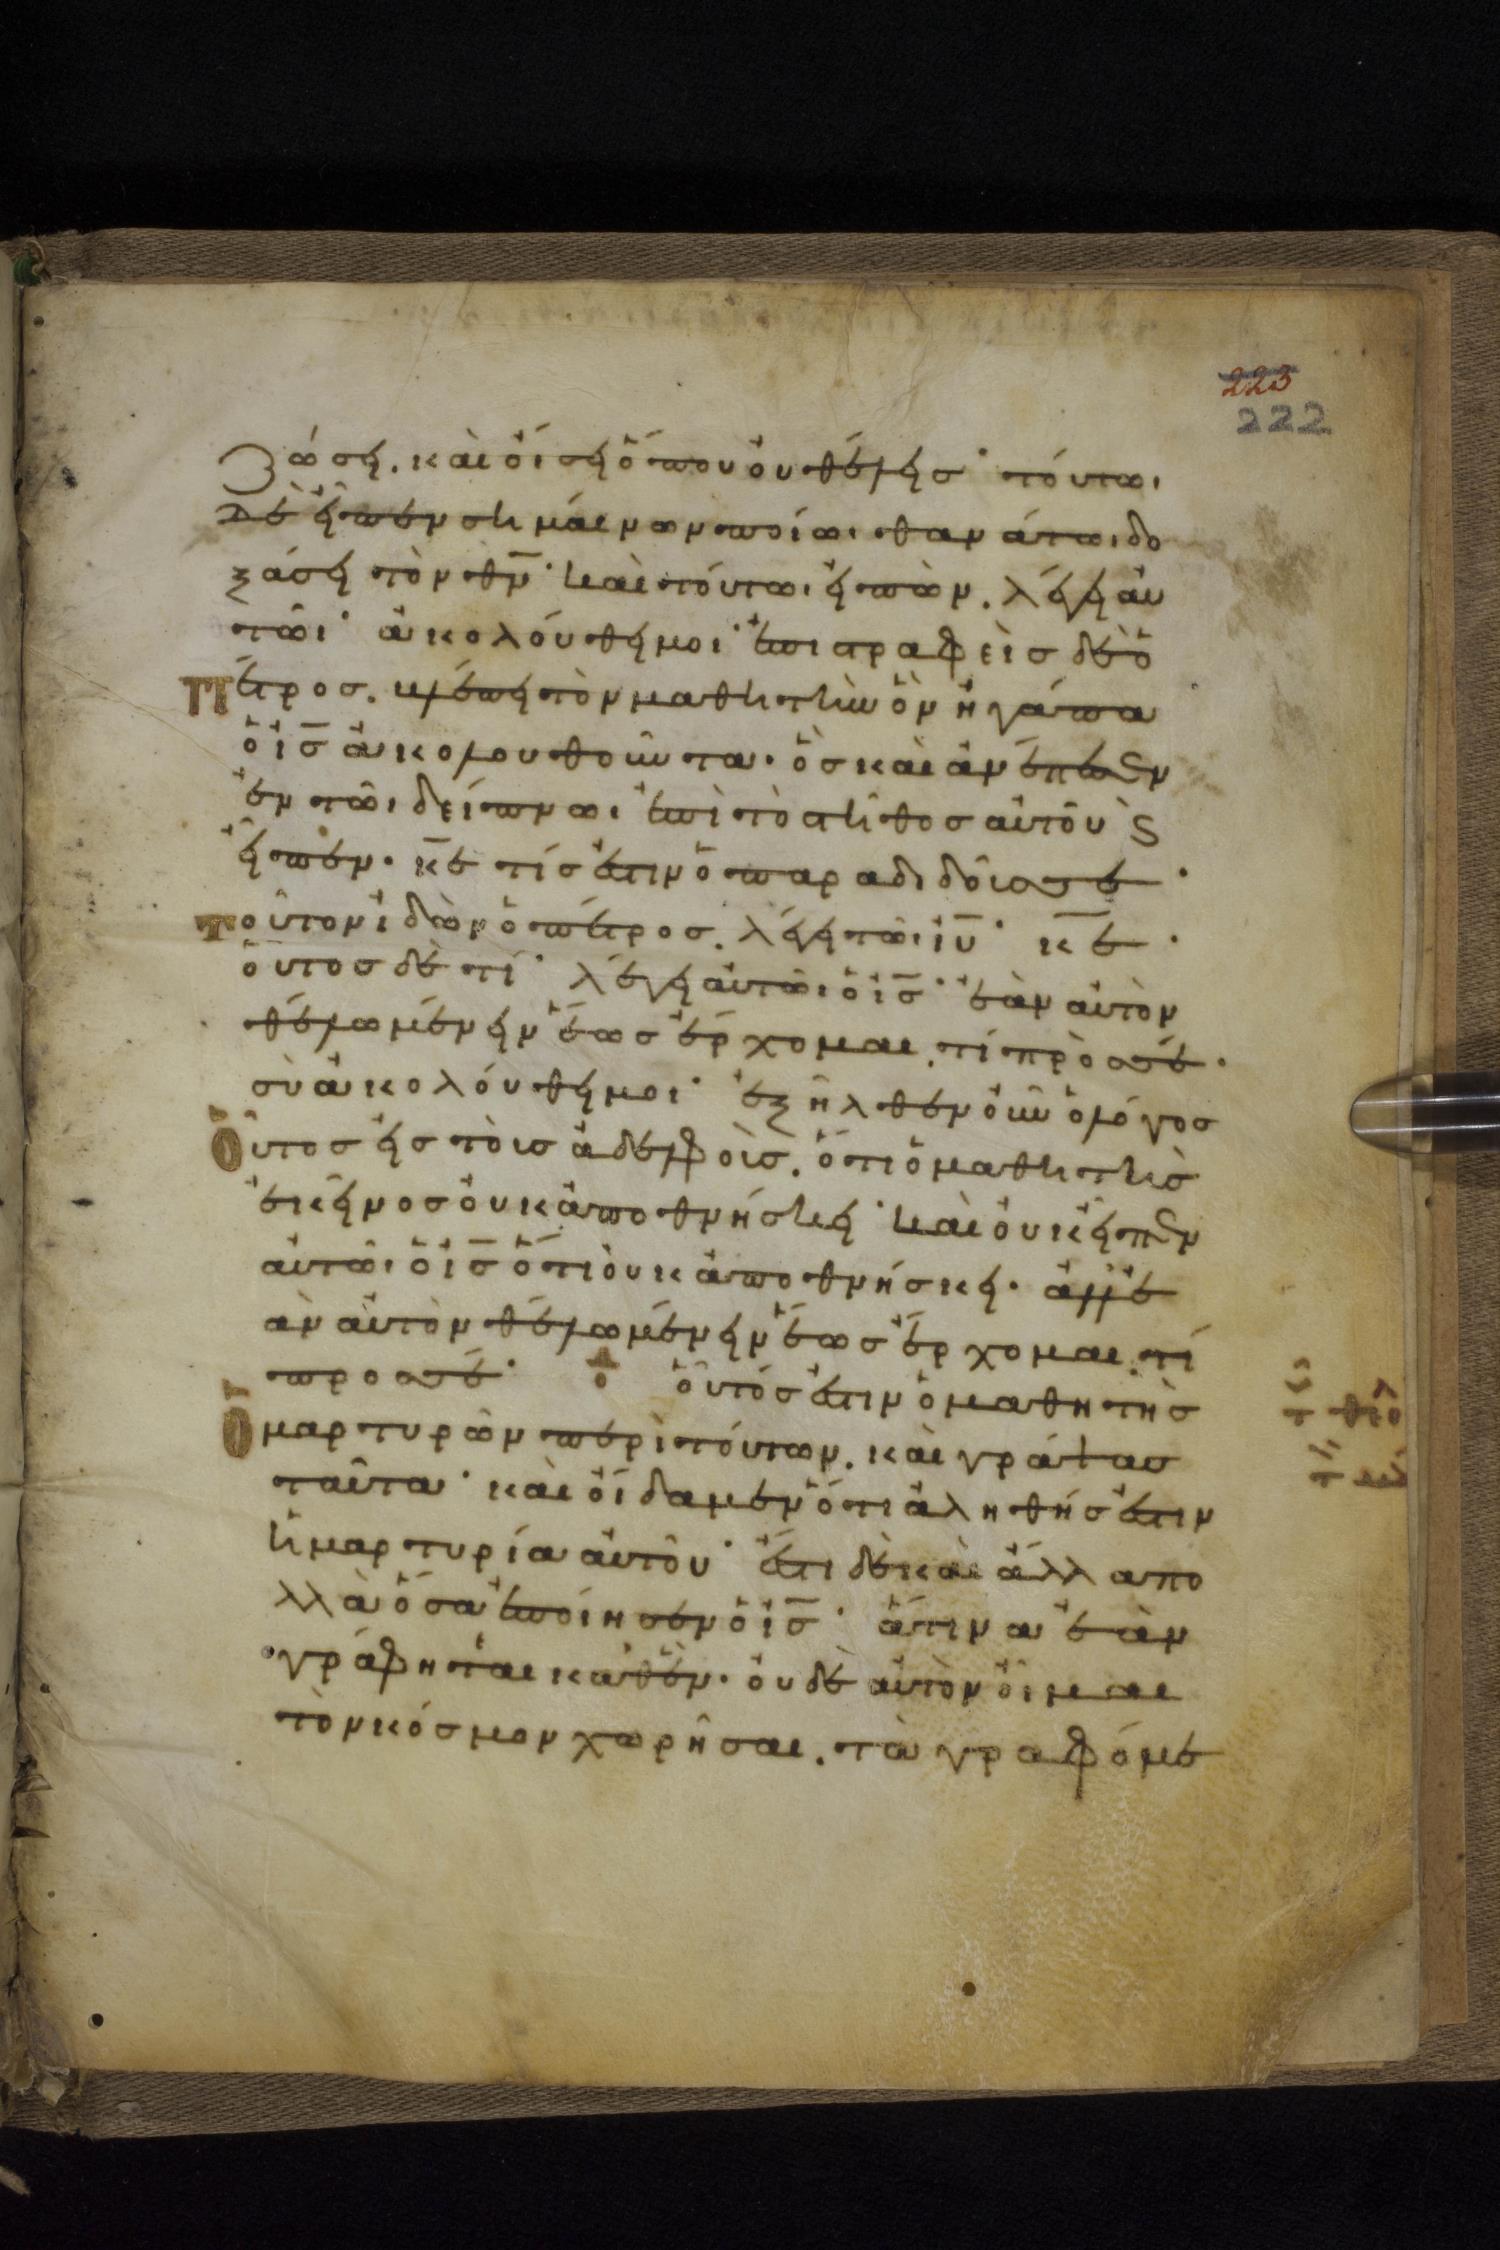 223
222
ζώσει. καὶ οἴσει ὅπου οὐ θέλεις· τοῦτο
δὲ εἶπεν σημαίνων ποίωι θανάτωι δο
ξάσει τὸν θν̅· καὶ τοῦτο εἰπὼν. λέγει αὐ
τῶι· ἀκολούθει μοι· ἐπιστραφεὶς δὲ ὁ
Πέτρος. βλέπει τὸν μαθητὴν ὃν ἠγάπα
ὁ ις̅ ἀκολουθοῦντα· ὃς καὶ ἀνέπεσεν
ἐν τῶι δείπνωι ἐπὶ τὸ στῆθος αὐτοῦ ϗ
εἶπεν· κε̅ τίς ἐστιν ὁ παραδιδούς σε·
Τοῦτον ἰδὼν ὁ πέτρος. λέγει τῶι ιυ̅· κε̅·
οὗτος δὲ τί· λέγει αὐτῶι ὁ ις̅· ἐὰν αὐτὸν
θέλω μένειν ἕως ἔρχομαι. τί πρὸς σέ·
σὺ ἀκολούθει μοι· ἐξῆλθεν οὖν ὁ λόγος
Οὗτος εἰς τοὺς ἀδελφοὺς. ὅτι ὁ μαθητὴς
ἐκεῖνος οὐκ ἀποθνήσκει· καὶ οὐκ εἶπεν
αὐτῶι ὁ ις̅ ὅτι οὐκ ἀποθνήσκει· ἀλλ' ἐ
ὰν αὐτὸν θέλω μένειν ἕως ἔρχομαι. τί
προς σέ· οὗτός ἐστιν ὁ μαθητὴς
Ὁ μαρτυρῶν περὶ τούτων. καὶ γράψας
ταῦτα· καὶ οἴδαμεν ὅτι ἀληθής ἐστιν
ἡ μαρτυρία αὐτοῦ· ἔστι δὲ καὶ ἄλλα πο
λλὰ ὅσα ἐποίησεν ὁ ις̅· ἅτινα ἐὰν
γράφηται καθ' ἕν. οὐδὲ αὐτὸν οἶμαι
τὸν κόσμον χωρῆσαι. τὰ γραφόμε